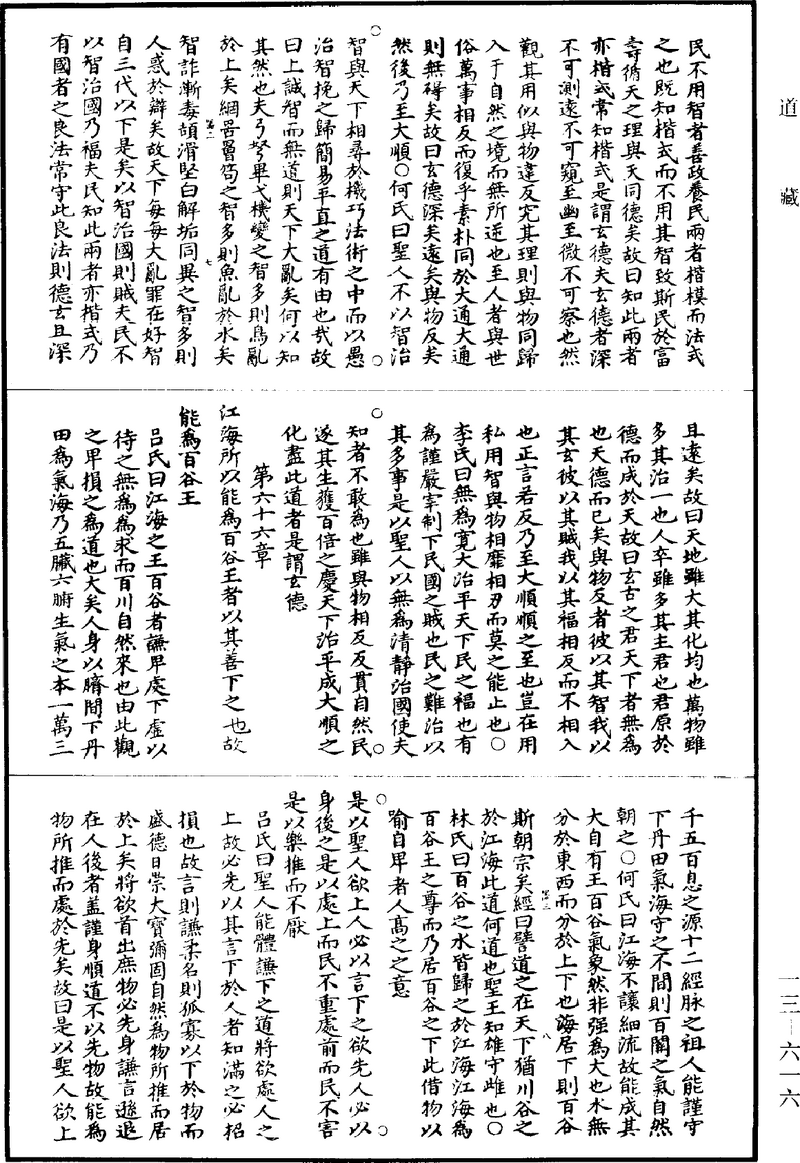 道藏
民不用智者善政養民兩者楷模而法式
之也既知楷式而不用其智致斯民於富
壽循天之理與天同德矣故曰知此兩者
亦楷式常知楷式是謂玄德夫玄德者深
不可測遠不可窺至幽至微不可察也然
觀其用似與物違反究其理則與物同歸
入于自然之境而無所逆也至人者與世
俗萬事相反而復乎素朴同於大通大通
則無碍矣故曰玄德深矣遠矣與物反矣
然後乃至大順○何氏曰聖人不以智治
智與天下相尋於機巧法術之中而以愚
治智挽之歸簡易平直之道有由也哉故
曰上誠智而無道則天下大亂矣何以知
其然也夫弓弩畢弋機變之智多則鳥亂
於上矣網罟罾笱之智多則魚亂於水矣
智詐漸毒頡滑堅白解垢同異之智多則
人惑於辯矣故天下每每大亂罪在好智
自三代以下是矣以智治國則賊夫民不
以智治國乃福夫民知此兩者亦楷式乃
有國者之良法常守此良法則德玄且深
且遠矣故曰天地雖大其化均也萬物雖
多其治一也人卒雖多其主君也君原於
德而成於天故曰玄古之君天下者無為
也天德而已矣與物反者彼以其智我以
其玄彼以其賊我以其福相反而不相入
也正言若反乃至大順順之至也豈在用
私用智與物相靡相刃而莫之能止也○
李氏曰無為寬大治平天下民之福也有
為謹嚴宰制下民國之賊也民之難治以
其多事是以聖人以無為清靜治國使夫
知者不敢為也雖與物相反反貫自然民
遂其生獲百倍之慶天下治平成大順之
化盡此道者是謂玄德
第六十六章
江海所以能為百谷王者以其善下之也故
能為百谷王
呂氏曰江海之王百谷者謙卑處下虛以
待之無為為求而百川自然來也由此觀
之卑損之為道也大矣人身以臍間下丹
田為氣海乃五臟六腑生氣之本一萬三
千五百息之源十二經脉之祖人能謹守
下丹田氣海守之不間則百關之氣自然
朝之○何氏曰江海不讓細流故能成其
大自有王百谷氣象然非强為大也水無
分於東西而分於上下也海居下則百谷
斯朝宗矣經曰譬道之在天下猶川谷之
於江海此道何道也聖王知雄守雌也○
林氏曰百谷之水皆歸之於江海江海為
百谷王之尊而乃居百谷之下此借物以
喻自卑者人高之之意
是以聖人欲上人必以言下之欲先人必以
身後之是以處上而民不重處前而民不害
是以樂推而不厭
呂氏曰聖人能體謙下之道將欲處人之
上故必先以其言下於人者知滿之必招
損也故言則謙柔名則孤寡以下於物而
盛德日崇大寶彌固自然為物所推而居
於上矣將欲首出庶物必先身謙言遜退
在人後者蓋謹身順道不以先物故能為
物所推而處於先矣故曰是以聖人欲上
一三－六一六